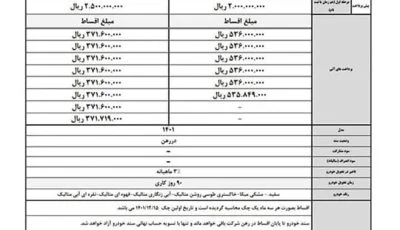 پیش پرداخت
۲.۰۰۰.۰۰۰.۰۰۰ ریال
۲.۵۰۰.۰۰۰.۰۰۰ ریال
مبلغ اقساط
مبلغ اقساط
پرداخت های آتی
۵۳۶.۰۰۰.۰۰۰ ریال
۳۷۱.۶۰۰.۰۰۰ ریال
۵۳۶.۰۰۰.۰۰۰ ریال
۳۷۱.۶۰۰.۰۰۰ ریال
۵۳۶.۰۰۰.۰۰۰ ریال
۳۷۱.۶۰۰.۰۰۰ ریال
۵۳۶.۰۰۰.۰۰۰ ریال
۳۷۱.۶۰۰.۰۰۰ ریال
۵۳۵.۸۴۹.۰۰۰ ریال
۳۷۱.۶۰۰.۰۰۰ ریال
-
۳۷۱.۶۰۰.۰۰۰ ریال
-
۳۷۱.۷۱۹.۰۰۰ ریال
مدل
۱۴۰۱
وضعیت سند
در رهن
سود مشارکت
-
-
۳٪ ماهیانه
زمان تحویل خودرو
۹۰ روز کاری
رنگ خودرو
سفید - مشکی میکا- خاکستری طوسی روشن متالیک- آبی زنگاری متالیک- قهوه ای متالیک- نقره ای آبی متالیک
اقساط بصورت هر سه ماه یک چک محاسبه گردیده است و تاریخ اولین چک ۱۴۰۱/۱۲/۱۵ می باشد.
سند خودرو تا پایان اقساط در رهن شرکت باقی خواهد ماند و تنها با تسویه حساب نهائی سند خودرو آزاد خواهد شد.